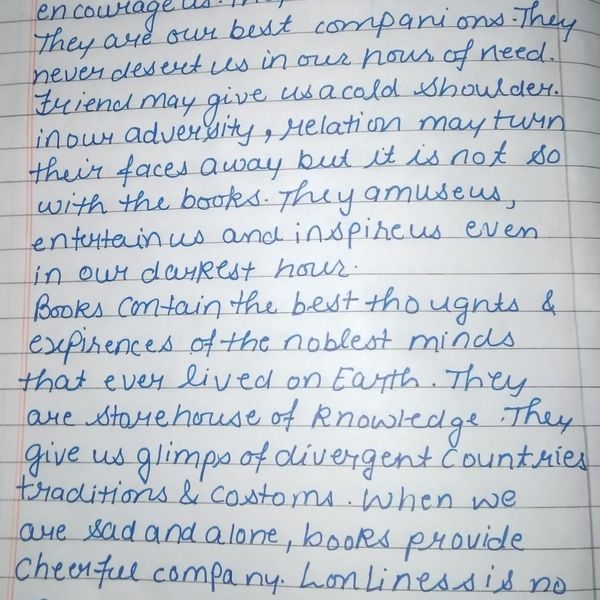 encourage us. They
They are our best companions. They
never desert us in our hour of need.
Friend may give us a cold shoulder.
in our adversity, relation may turn
their faces away but it is not so
with the books. They amuse us,
entertain us and inspire us even
in our darkest hour.
Books contain the best thoughts &
expirences of the noblest minds
that ever lived on Earth. They
are storehouse of knowledge. They
give us glimps of divergent countries
traditions & costoms. When we
are sad and alone, books provide
cheerful company. Lonliness is no